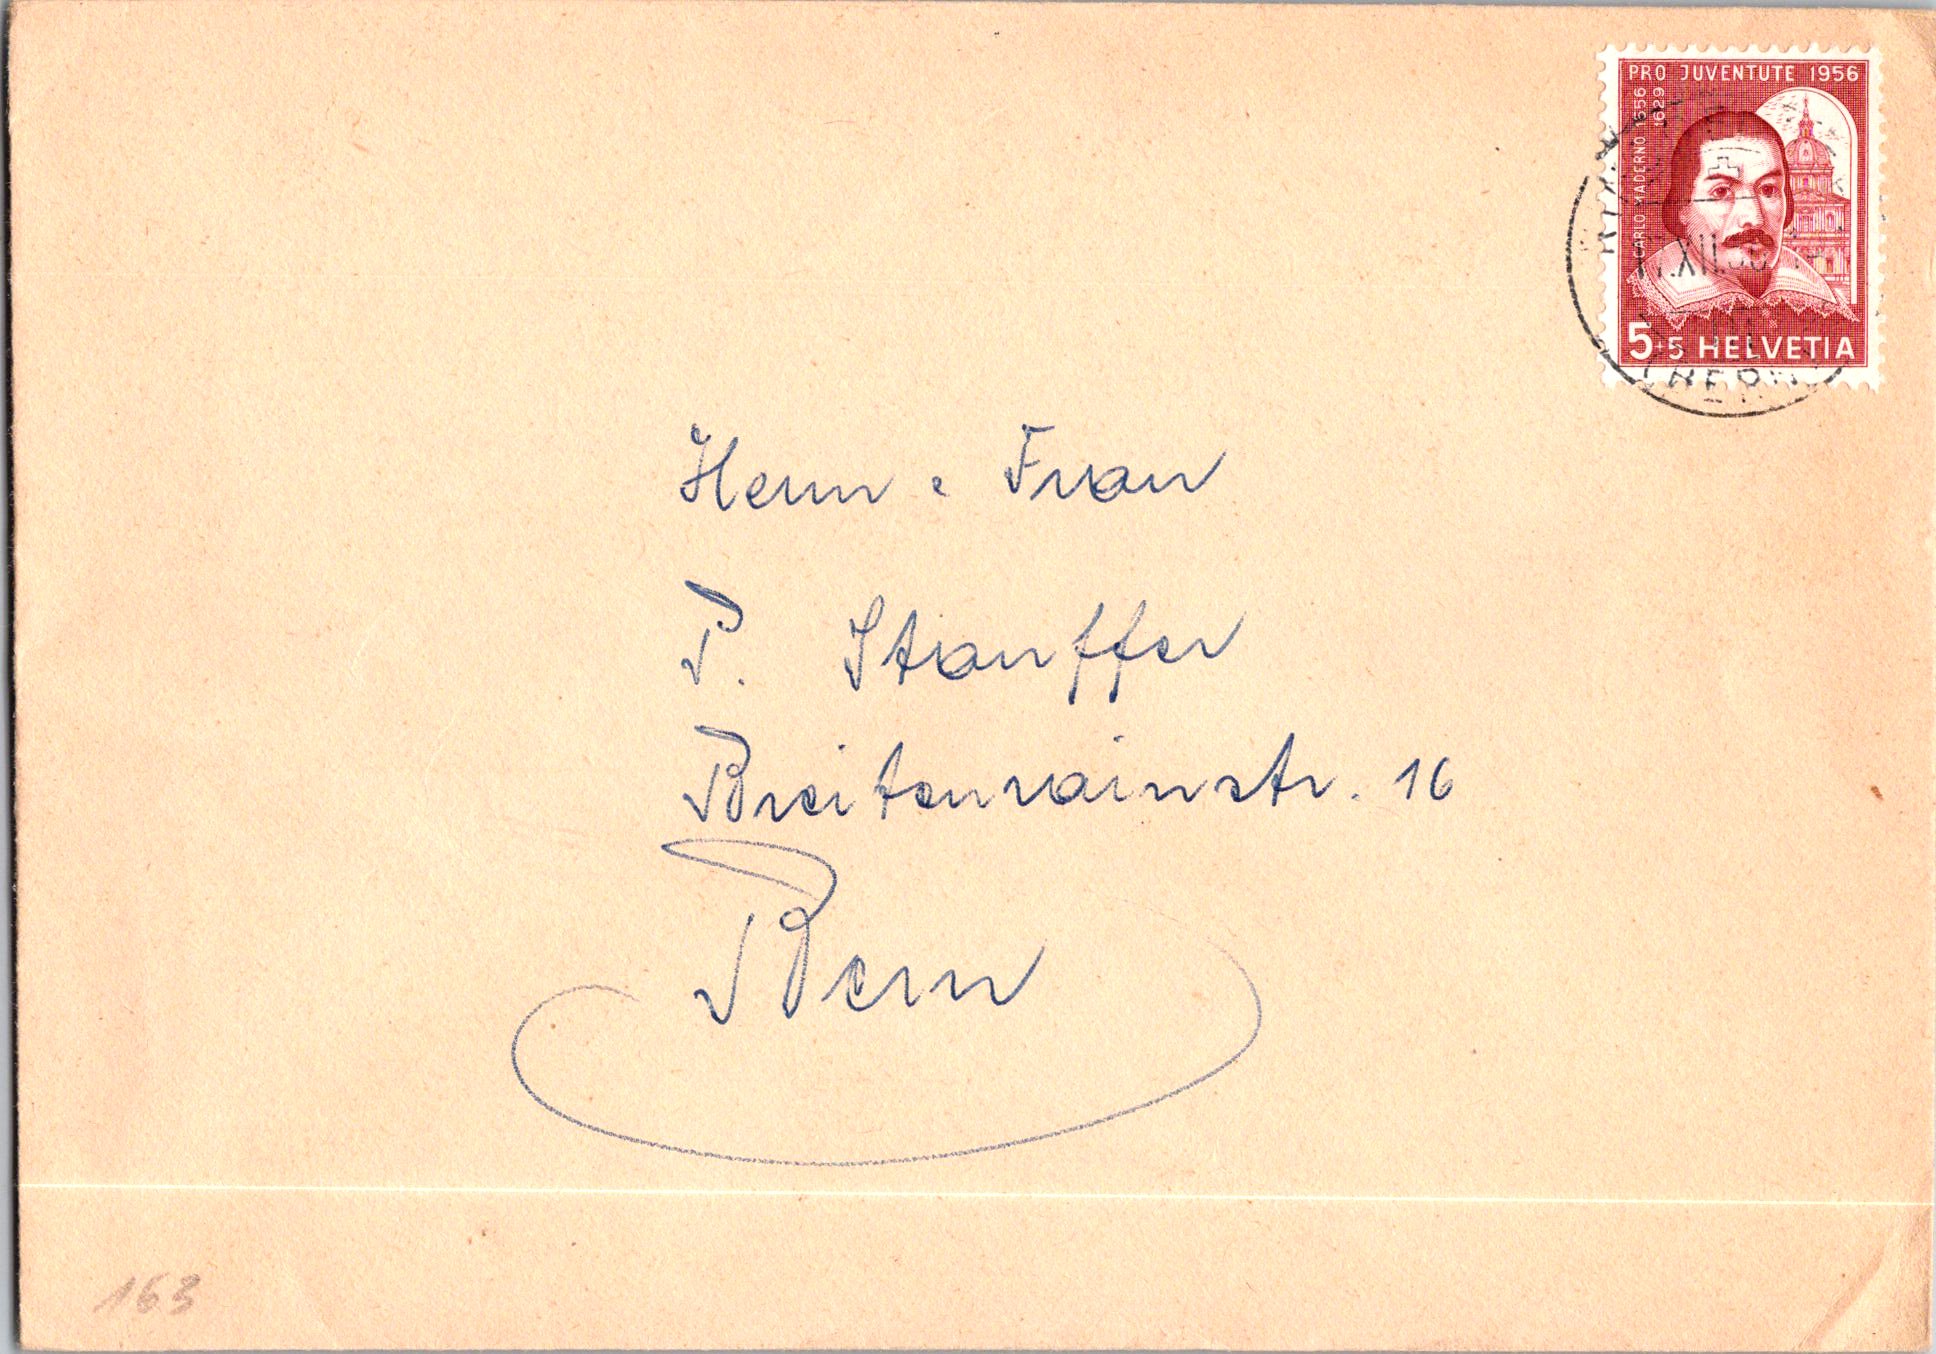 PRO JUVENTUTE 1956
CARLO MADERNO 1556
1629
5+5 HELVETIA
XII.56
(BERN
Herrn & Frau
P. Stauffer
Breitenrainstr. 16
Bern
163